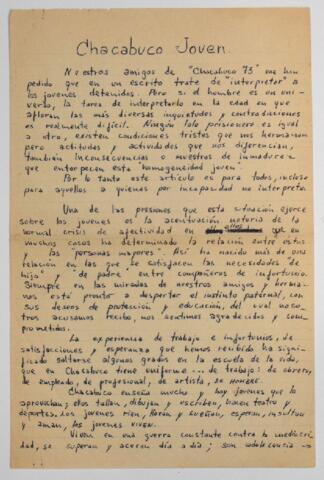 Chacabuco Joven.
Nuestros amigos de "Chacabuco 73" me han
pedido que en un escrito trate de "interpretar" a
los jóvenes detenidos. Pero si el hombre es un uni-
verso, la tarea de interpretarlo en la edad en que
afloran las más diversas inquietudes y contradicciones
es realmente difícil. Ningún joven prisionero es igual
a otro, existen condiciones tristes que nos hermanan
pero actitudes y actividades que nos diferencian,
también inconsecuencias o muestras de inmadurez
que entorpecen esta homogeneidad joven.
Por lo tanto este artículo es para todos, incluso
para aquellos a quienes por incapacidad no interpreto.
Una de las presiones que esta situación ejerce
sobre los jóvenes es la acentuación notoria de la
normal crisis de afectividad en ellos que en
muchos casos ha determinado la relación entre estos
y las personas mayores. Así ha nacido más de una
relación en las que se satisfacen las necesidades de
"hijo" y "de padre" entre compañeros de infortunio.
Siempre en las miradas de nuestros amigos y herma-
nos está pronto a despertar el instinto paternal, con
sus deseos de protección y educación, del cual noso-
tros acusamos recibo, nos sentimos agradecidos y com-
prometidos.
La experiencia de trabajo e infortunios, de
satisfacciones y esperanza que hemos recibido ha signi-
ficado saltarse algunos grados en la escuela de la vida,
que en Chacabuco tiene uniforme... de trabajo: de obrero,
de empleado, de profesional, de artista, de HOMBRE.
Chacabuco enseña mucho y hay jóvenes que lo
aprovechan; ellos tallan, dibujan y escriben, hacen teatro y
deportes. Los jóvenes ríen, lloran y sueñan, esperan, insultan
y aman, los jóvenes VIVEN.
Viven en una guerra constante contra la mediocri-
dad, se superan y crecen día a día; son adolescencia